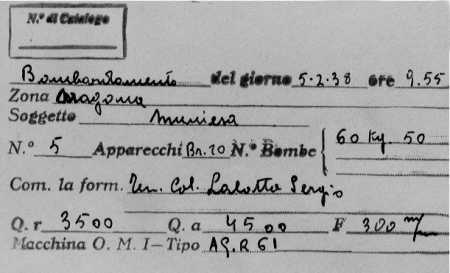 N.º di Catalogo
Bombardamento del giorno 5-2-38 ore 9.55
Zona Aragona
Soggetto Muniesa
N.º 5 Apparecchi Br.20 N.º Bombe { 60 Kg. 50
Com. la form. Ten. Col. Lalotta Sergio
Q. r 3500 Q. a 4500 F 300 m/m
Macchina O. M. I-Tipo AG.R 61